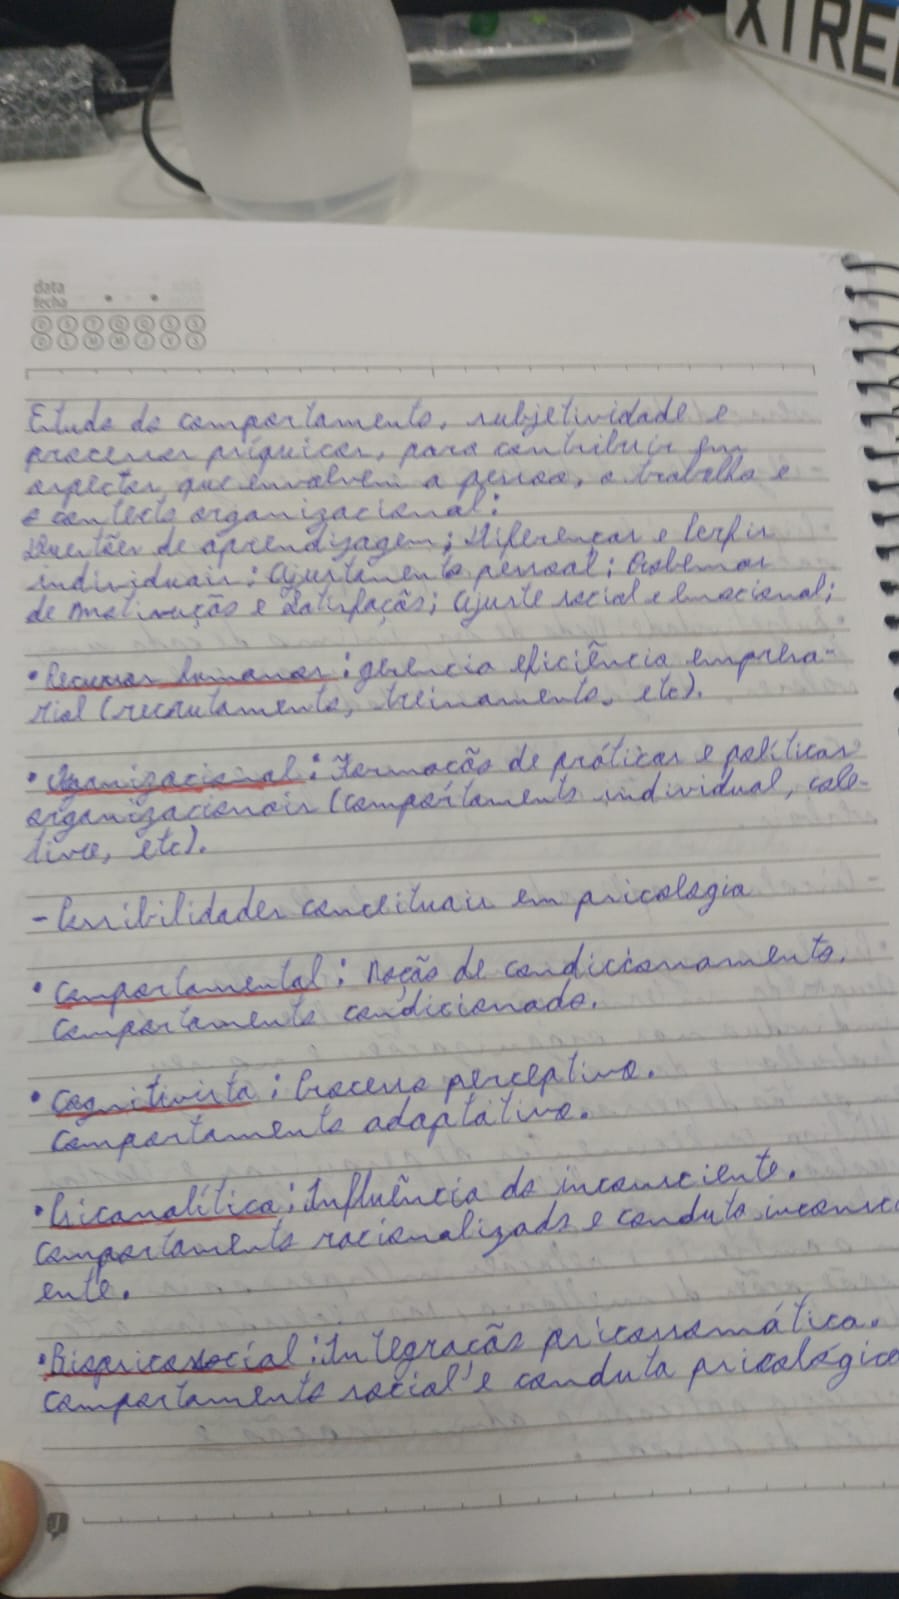 XTRE
data
fecha
D S T Q Q S S
D L M M J V S
Etudo do comportamento, subjetividade e
processos psíquicos, para contribuir em
aspectos que envolvem a pessoa, o trabalho e
o contexto organizacional:
Questões de aprendizagem; Diferenças e Perfis
individuais; Ajustamento pessoal; Problemas
de motivação e Satisfação; Ajuste social e Emocional;
• Recursos humanos: gerência eficiência empresa-
rial (recrutamento, treinamento, etc).
• Organizacional: Formação de práticas e políticas
organizacionais (comportamento individual, cole-
tivo, etc).
- Possibilidades conceituais em psicologia
• Comportamental: Noção de condicionamento.
comportamento condicionado.
• Cognitivista: Processo perceptivo.
comportamento adaptativo.
• Psicanalítica: Influência do inconsciente.
comportamento racionalizado e conduta inconsci
ente.
• Biopsicosocial: Integração psicossomática.
comportamento social e conduta psicológica